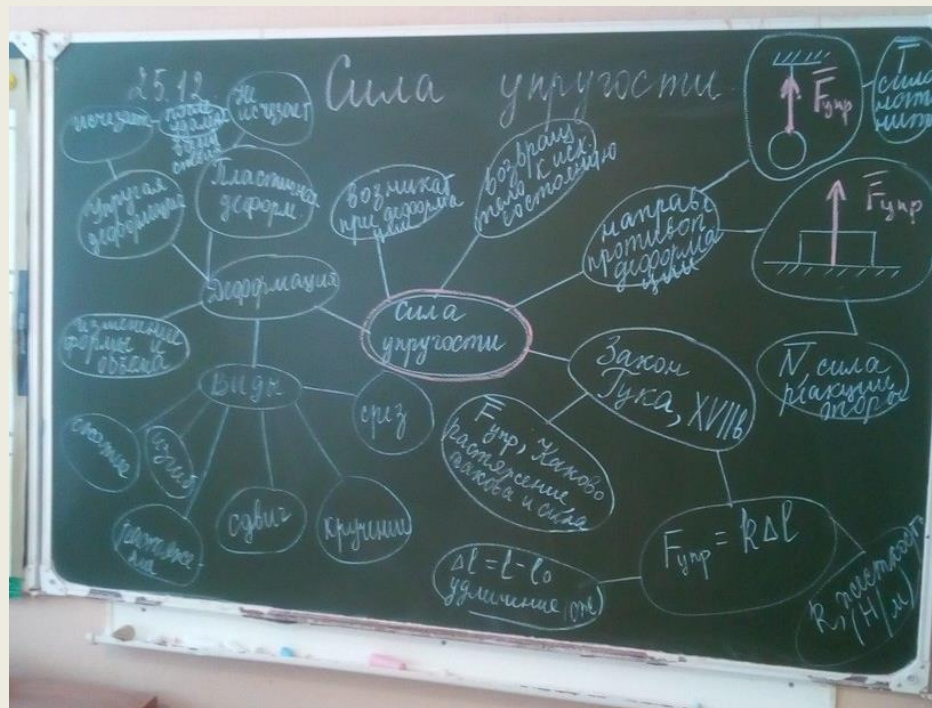 25.12.
Сила упругости
исчезает
не
исчезает
Упругая
деформация
Пластичная
деформ
возникает
при деформа
ции
возвращ
тело к исх.
состоянию
направл
противоп
деформа
ции
F упр
T
сила
нат
нит
F упр
N, сила
реакции
опоры
Деформация
изменение
формы
объёма
сила
упругости
Закон
Гука, XVIIв
Виды
сжатие
изгиб
растяже
ние
сдвиг
кручение
срез
F упр, Каково
растяжение
такова и сила
F упр = kΔl
Δl = l - l₀
удлинение (м)
k, жестк
(Н/м)